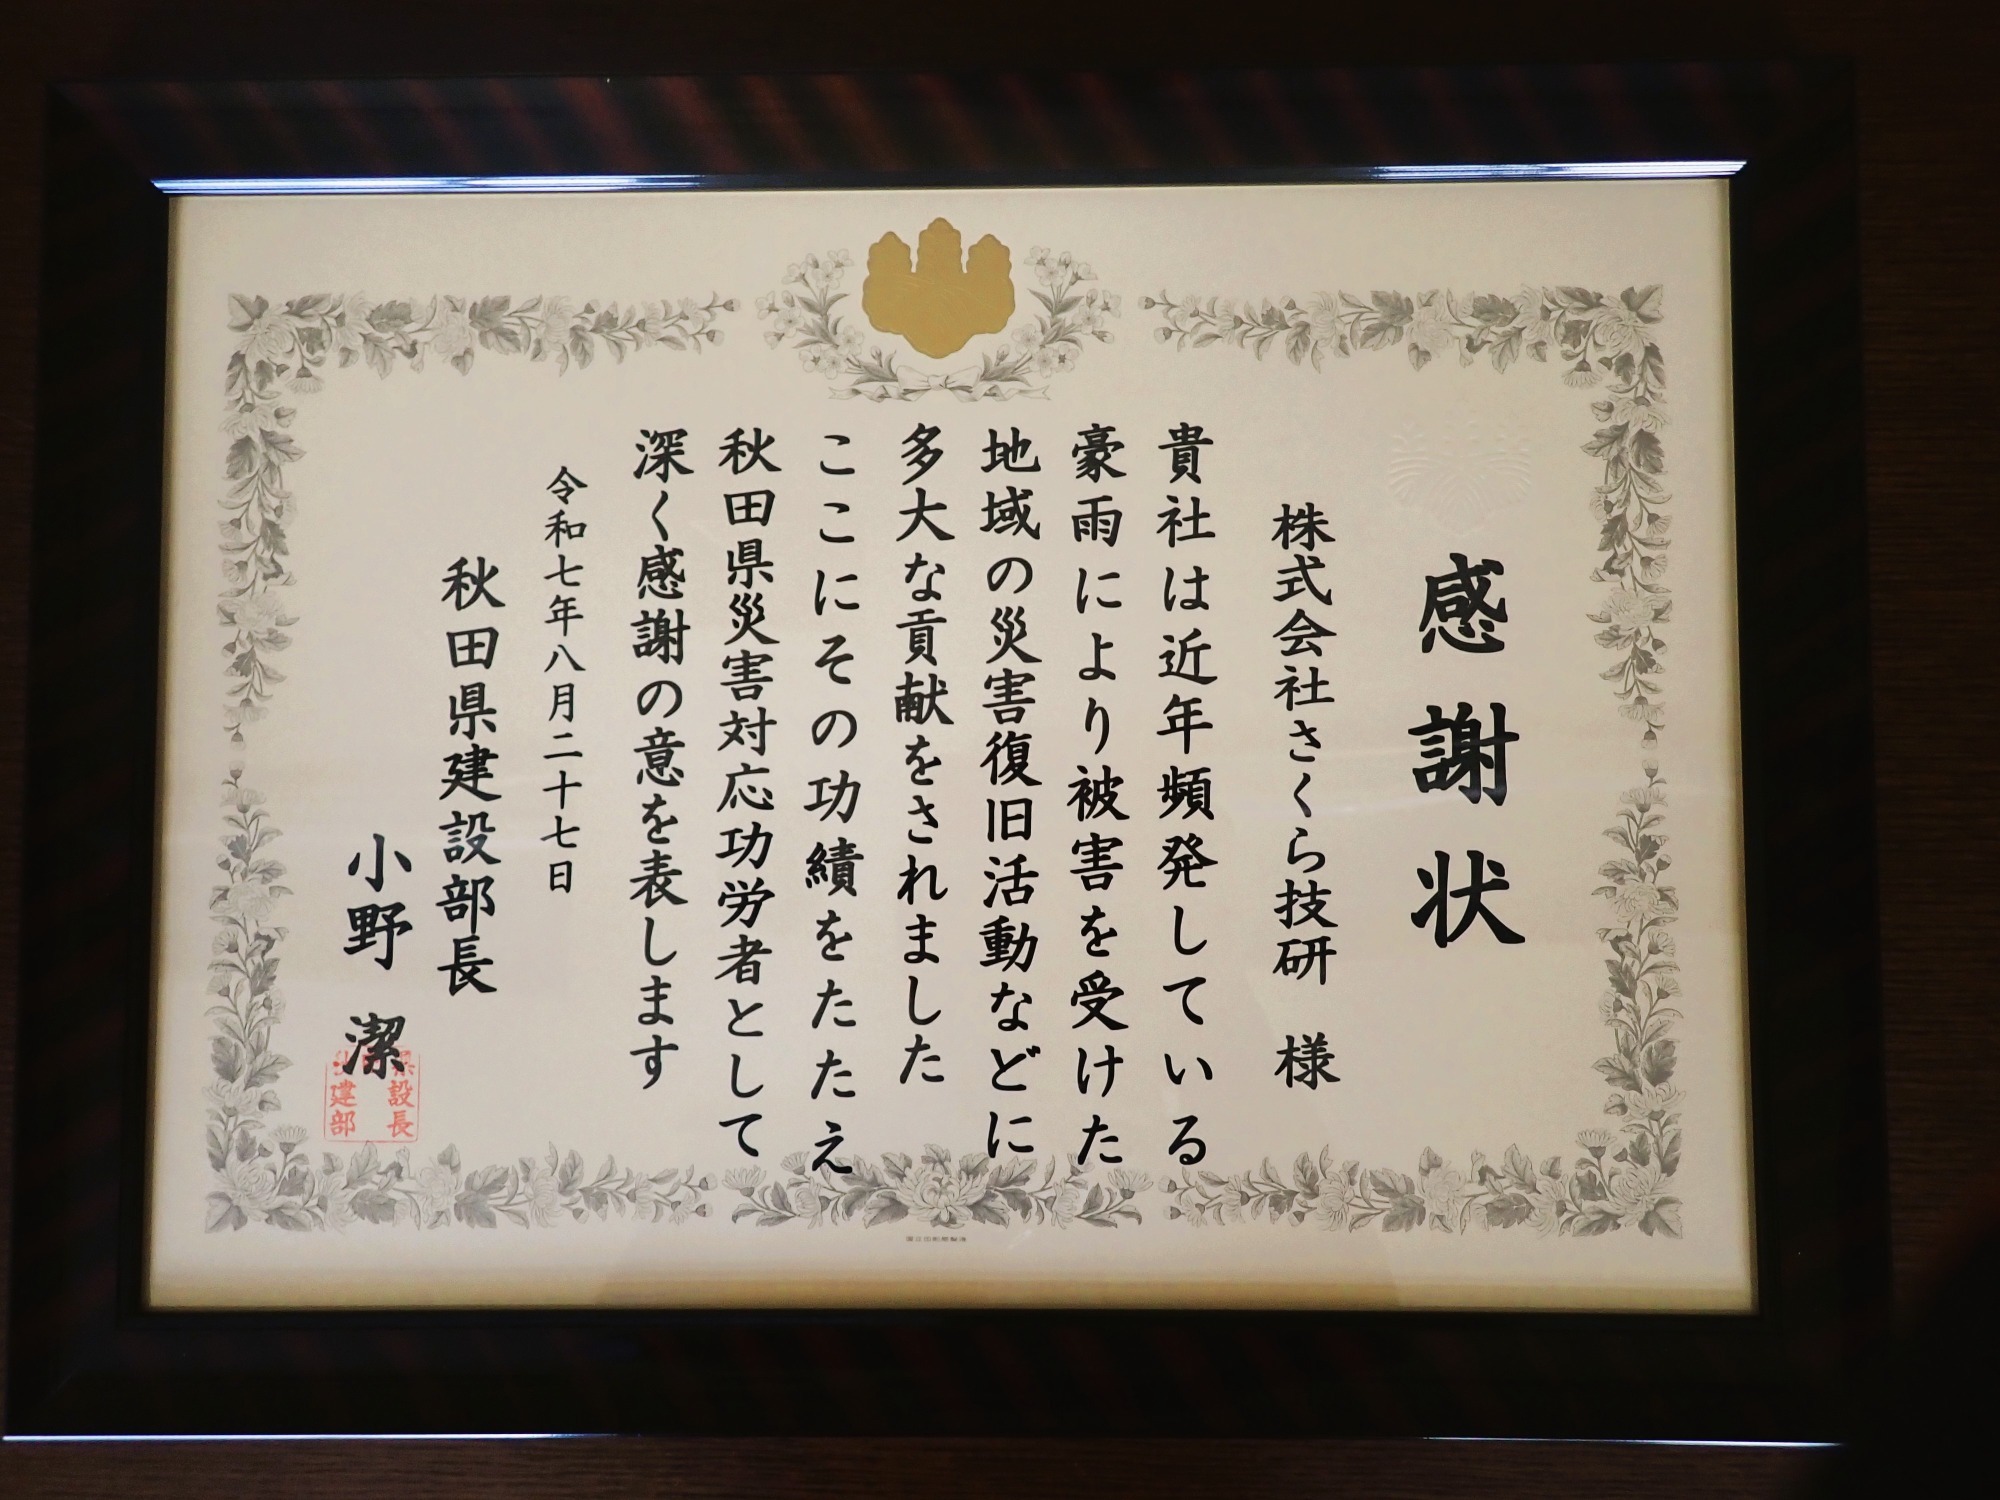 感謝状
株式会社さくら技研　様
貴社は近年頻発している
豪雨により被害を受けた
地域の災害復旧活動などに
多大な貢献をされました
ここにその功績をたたえ
秋田県災害対応功労者として
深く感謝の意を表します
令和七年八月二十七日
秋田県建設部長
小野　潔
国立印刷局製造